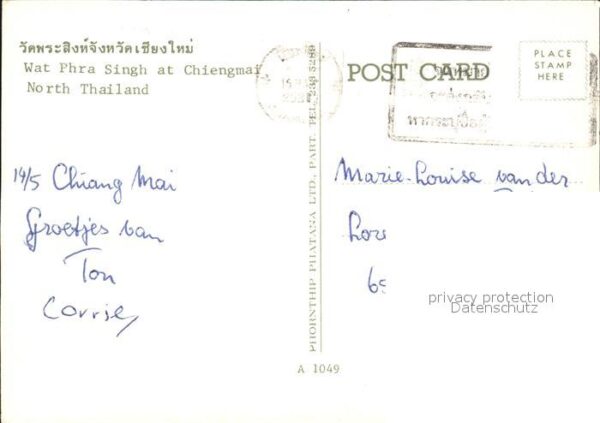 วัดพระสิงห์จังหวัดเชียงใหม่
Wat Phra Singh at Chiengmai
North Thailand
POST CARD
PLACE
STAMP
HERE
14/5 Chiang Mai
Groetjes van
Ton
Corrie,
PHORNTHIP PHATANA LTD., PART. TEL. 233 5289
A 1049
Marie-Louise van der
Lore
privacy protection
Datenschutz